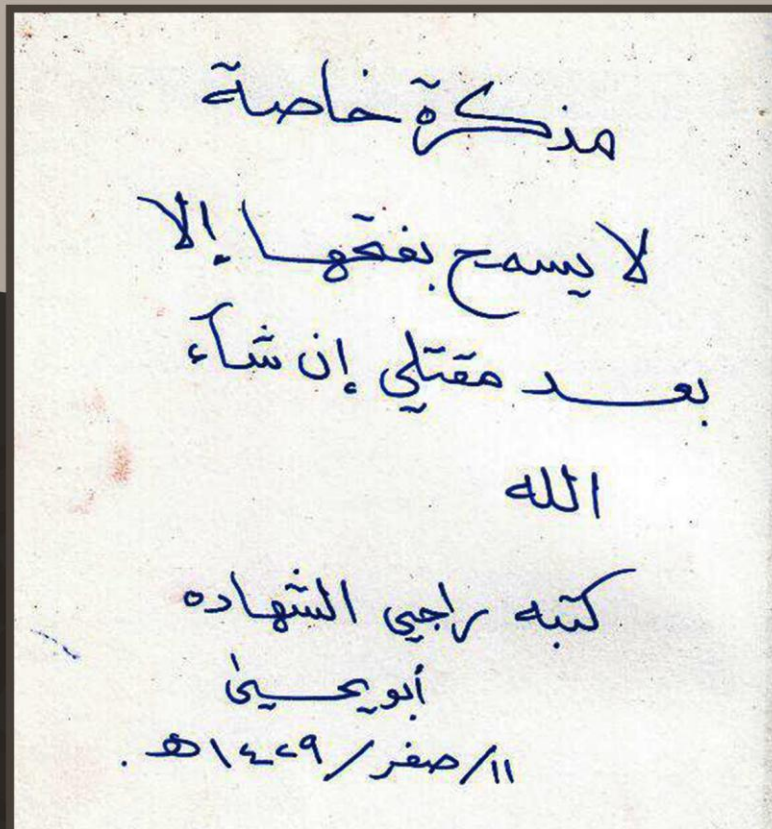 مذكرة خاصة
لا يسمح بفتحها إلا
بعد مقتلي إن شآء
الله
كتبه راجي الشهاده
أبو يحيىٰ
١١/صفر/١٤٢٩هـ.